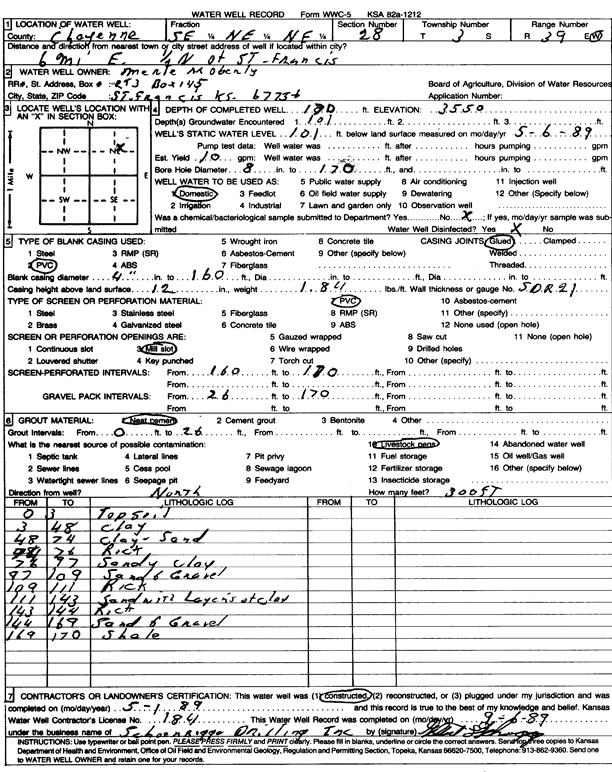 WATER WELL RECORD Form WWC-5 KSA 82a-1212
1 LOCATION OF WATER WELL: Fraction Section Number Township Number Range Number
County: Cheyenne SE ¼ NE ¼ NE ¼ 28 T 3 S R 39 E(W)
Distance and direction from nearest town or city street address of well if located within city?
6 mi E. ¼ N of ST-Francis
2 WATER WELL OWNER: Merle Moberly
RR#, St. Address, Box # : RT3 Box 145 Board of Agriculture, Division of Water Resources
City, State, ZIP Code : ST. Francis KS. 67756 Application Number:
3 LOCATE WELL'S LOCATION WITH AN "X" IN SECTION BOX:
N
NW NE
W E
SW SE
S
1 Mile
X
4 DEPTH OF COMPLETED WELL 170 ft. ELEVATION: 3550
Depth(s) Groundwater Encountered 1. 101 ft. 2. ft. 3. ft.
WELL'S STATIC WATER LEVEL 101 ft. below land surface measured on mo/day/yr 5-6-89
Pump test data: Well water was ft. after hours pumping gpm
Est. Yield 10 gpm: Well water was ft. after hours pumping gpm
Bore Hole Diameter 8 in. to 170 ft., and in. to ft.
WELL WATER TO BE USED AS: 5 Public water supply 8 Air conditioning 11 Injection well
1 Domestic 3 Feedlot 6 Oil field water supply 9 Dewatering 12 Other (Specify below)
2 Irrigation 4 Industrial 7 Lawn and garden only 10 Observation well
Was a chemical/bacteriological sample submitted to Department? Yes No X ; If yes, mo/day/yr sample was submitted Water Well Disinfected? Yes X No
5 TYPE OF BLANK CASING USED: 5 Wrought iron 8 Concrete tile CASING JOINTS: Glued Clamped
1 Steel 3 RMP (SR) 6 Asbestos-Cement 9 Other (specify below) Welded
2 PVC 4 ABS 7 Fiberglass Threaded
Blank casing diameter 4" in. to 160 ft., Dia in. to ft., Dia in. to ft.
Casing height above land surface 12 in., weight 1.84 lbs./ft. Wall thickness or gauge No. SDR 21
TYPE OF SCREEN OR PERFORATION MATERIAL: 7 PVC 10 Asbestos-cement
1 Steel 3 Stainless steel 5 Fiberglass 8 RMP (SR) 11 Other (specify)
2 Brass 4 Galvanized steel 6 Concrete tile 9 ABS 12 None used (open hole)
SCREEN OR PERFORATION OPENINGS ARE: 5 Gauzed wrapped 8 Saw cut 11 None (open hole)
1 Continuous slot 3 Mill slot 6 Wire wrapped 9 Drilled holes
2 Louvered shutter 4 Key punched 7 Torch cut 10 Other (specify)
SCREEN-PERFORATED INTERVALS: From 160 ft. to 170 ft., From ft. to ft.
From ft. to ft., From ft. to ft.
GRAVEL PACK INTERVALS: From 26 ft. to 170 ft., From ft. to ft.
From ft. to ft., From ft. to ft.
6 GROUT MATERIAL: 1 Neat cement 2 Cement grout 3 Bentonite 4 Other
Grout Intervals: From 0 ft. to 26 ft., From ft. to ft., From ft. to ft.
What is the nearest source of possible contamination: 10 Livestock pens 14 Abandoned water well
1 Septic tank 4 Lateral lines 7 Pit privy 11 Fuel storage 15 Oil well/Gas well
2 Sewer lines 5 Cess pool 8 Sewage lagoon 12 Fertilizer storage 16 Other (specify below)
3 Watertight sewer lines 6 Seepage pit 9 Feedyard 13 Insecticide storage
Direction from well? North How many feet? 300 FT
FROM TO LITHOLOGIC LOG FROM TO LITHOLOGIC LOG
0 3 Top Soil
3 48 Clay
48 74 Clay-Sand
74 76 Rick
76 97 Sandy Clay
97 109 Sand & Gravel
109 111 Rick
111 143 Sand with Layers of clay
143 144 Rick
144 169 Sand & Gravel
169 170 Shale
7 CONTRACTOR'S OR LANDOWNER'S CERTIFICATION: This water well was (1) constructed, (2) reconstructed, or (3) plugged under my jurisdiction and was
completed on (mo/day/year) 5-1-89 and this record is true to the best of my knowledge and belief. Kansas
Water Well Contractor's License No. 184 This Water Well Record was completed on (mo/day/yr) 9-6-89
under the business name of Drilling Inc by (signature)
INSTRUCTIONS: Use typewriter or ball point pen. PLEASE PRESS FIRMLY and PRINT clearly. Please fill in blanks, underline or circle the correct answers. Send top three copies to Kansas
Department of Health and Environment, Office of Oil Field and Environmental Geology, Regulation and Permitting Section, Topeka, Kansas 66620-7500, Telephone: 913-862-9360. Send one
to WATER WELL OWNER and retain one for your records.